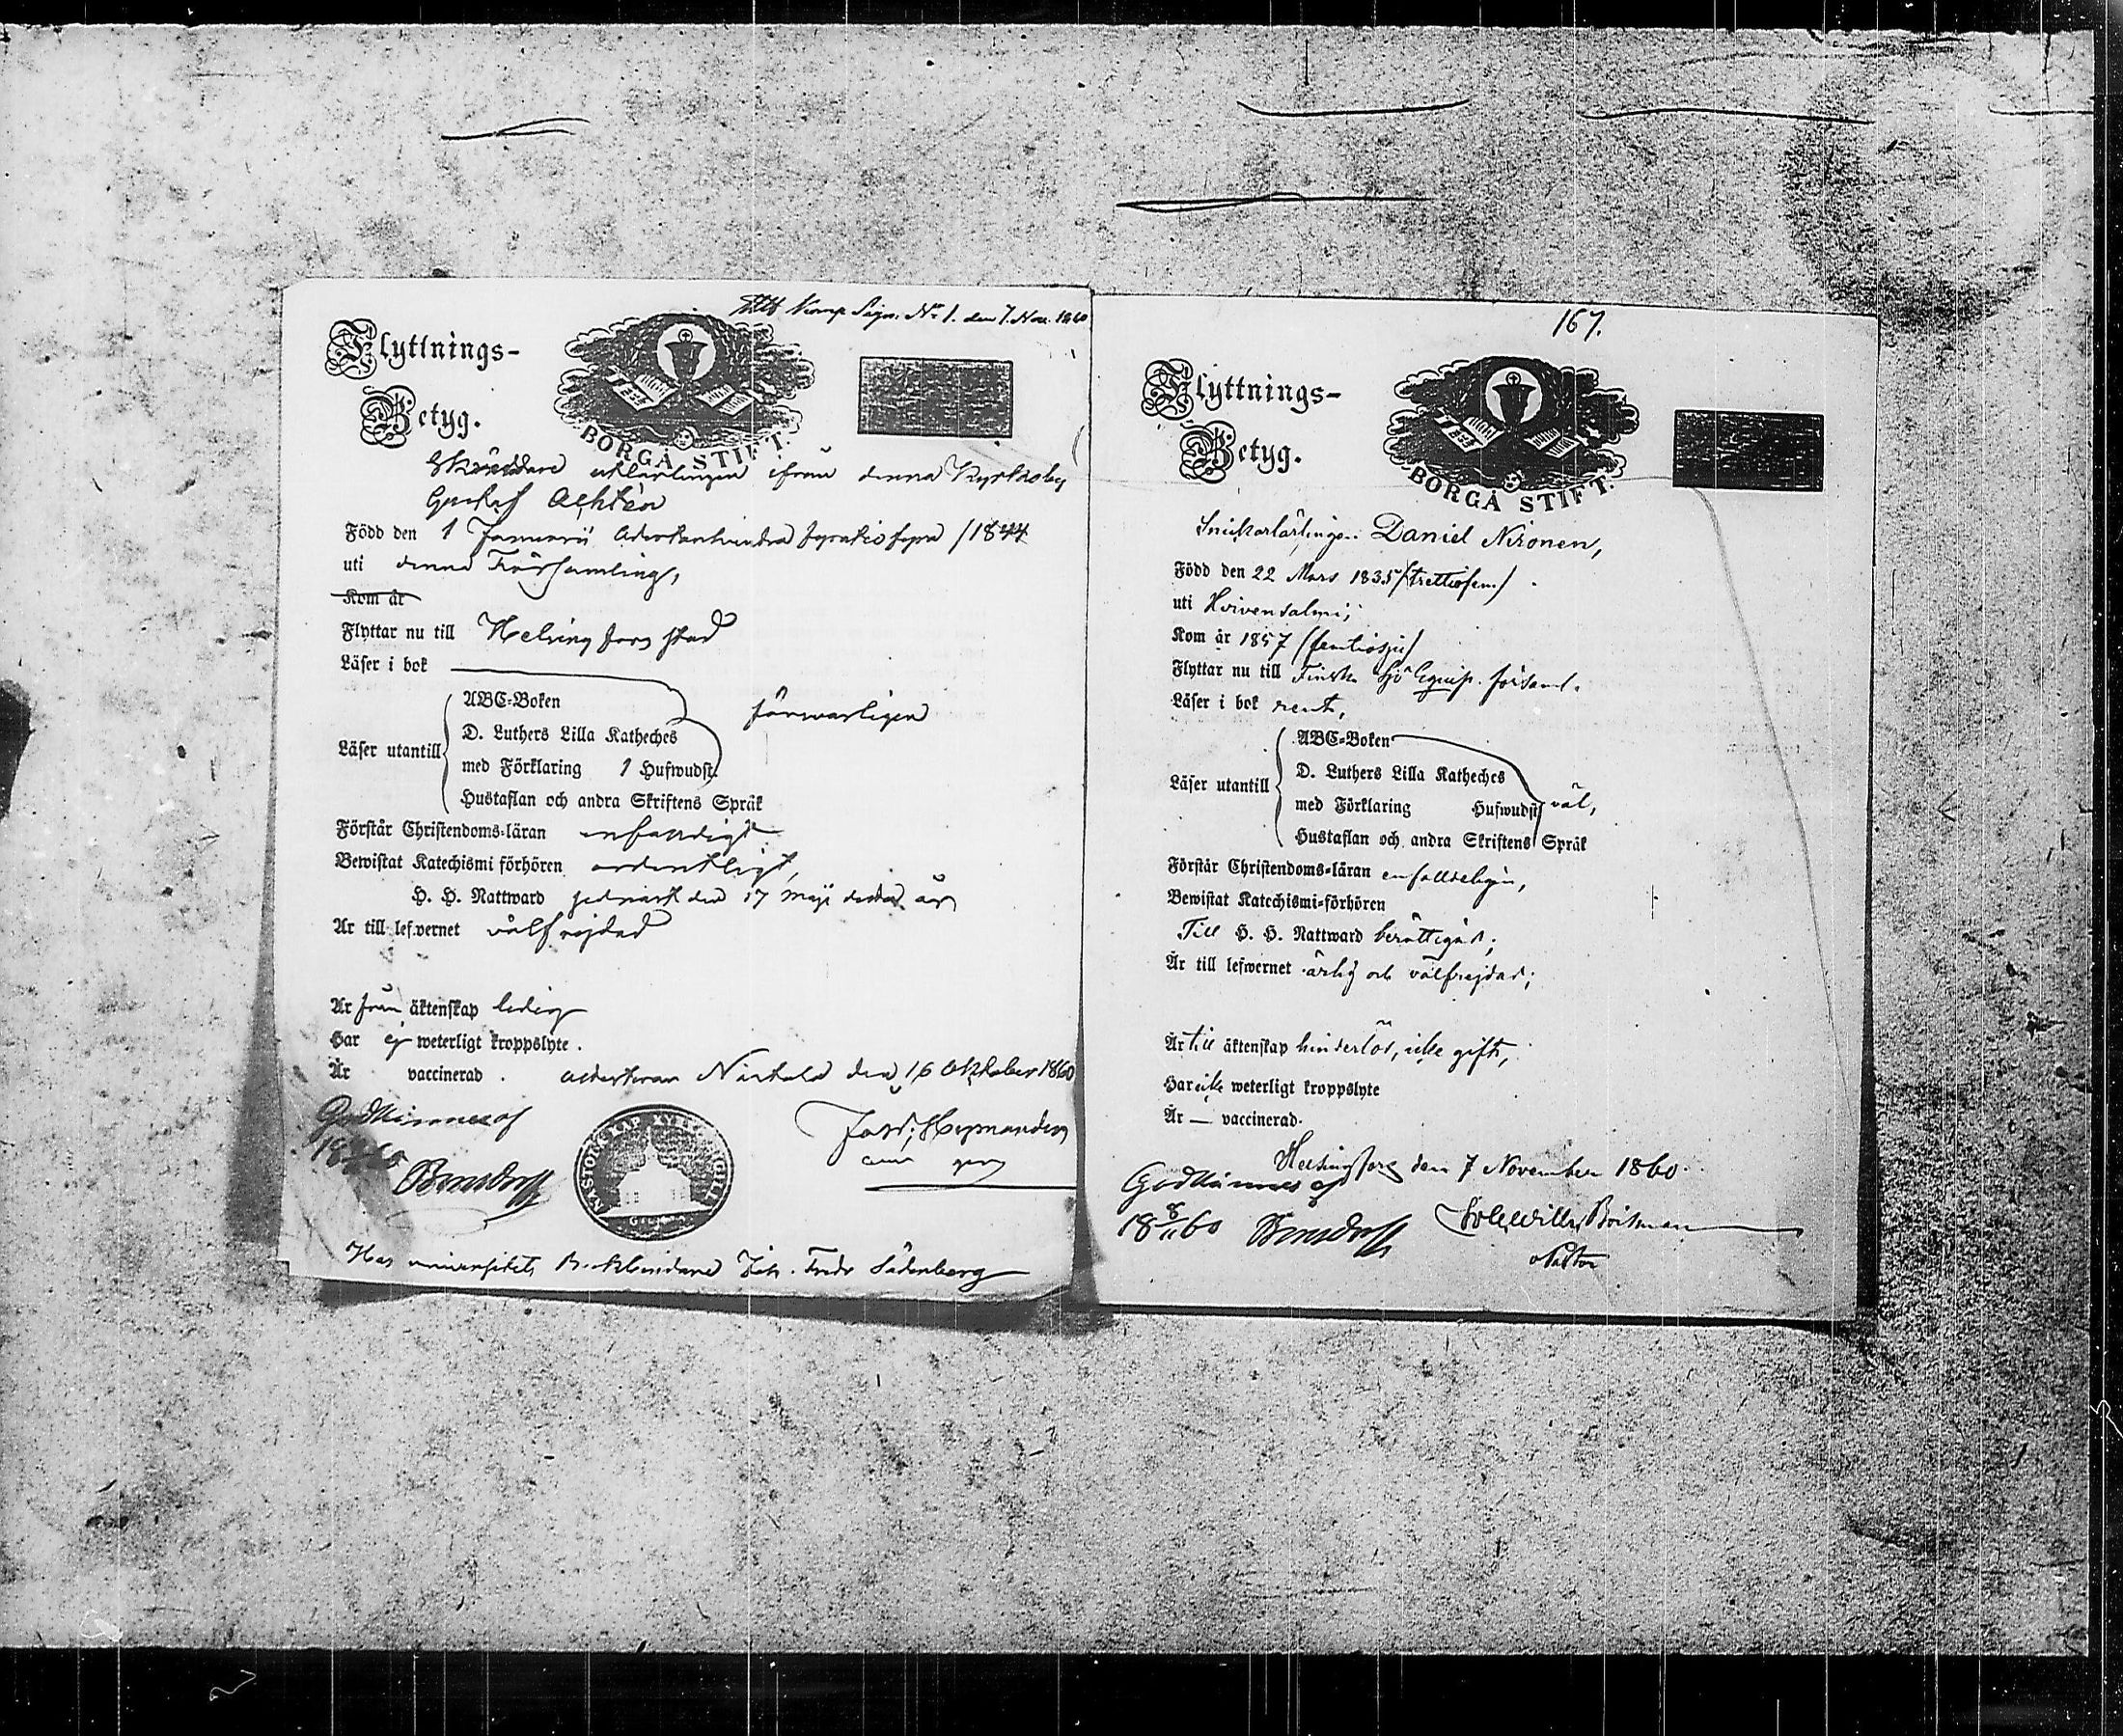 Komp. Sign. No 1. den 7. Nov. 1860
Flyttnings-
Betyg.
BORGÅ STIFT.
Skräddare utlärlingen ifrån denna Kyrkoby
Gustaf
Född den 1 Januarii Adertonhundra fyratiofyra /1844
uti denna Församling,
Kom år
Flyttar nu till Helsingfors stad
Läser i bok
ABC-Boken
D. Luthers Lilla Katheches
Läser utantill
med Förklaring 1 Hufwudst.
Hustaflan och andra Skriftens Språk
försvarligen
Förstår Christendoms-läran enfaldigt
Bewistat Katechismi förhören ordentligt,
H. H. Nattward sednast den 17 Maji detta år
Är till lefvernet välfrejdad
Är från äktenskap ledig
Har ej weterligt kroppslyte.
Är vaccinerad. den 16 Oktober 1860
Godkännes af
Hos universitets
167.
Flyttnings-
Betyg.
BORGÅ STIFT.
Snickarlärlingen Daniel Nironen,
Född den 22 Mars 1835 /trettiofem/
uti Hoivensalmi;
Kom år 1857 /femtiosju/
Flyttar nu till Finska Sjö Equip. församl.
Läser i bok rent,
ABC-Boken
D. Luthers Lilla Katheches
Läser utantill
med Förklaring Hufwudst väl,
Hustaflan och andra Skriftens Språk
Förstår Christendoms-läran enfaldeligen,
Bewistat Katechismi-förhören
Till H. H. Nattward berättigad;
Är till lefwernet ärlig och välfrejdad;
Är till äktenskap hinderlös, icke gift,
Har icke weterligt kroppslyte
Är — vaccinerad.
Helsingfors den 7 November 1860.
Godkännes af
18 8/11 60
Pastor